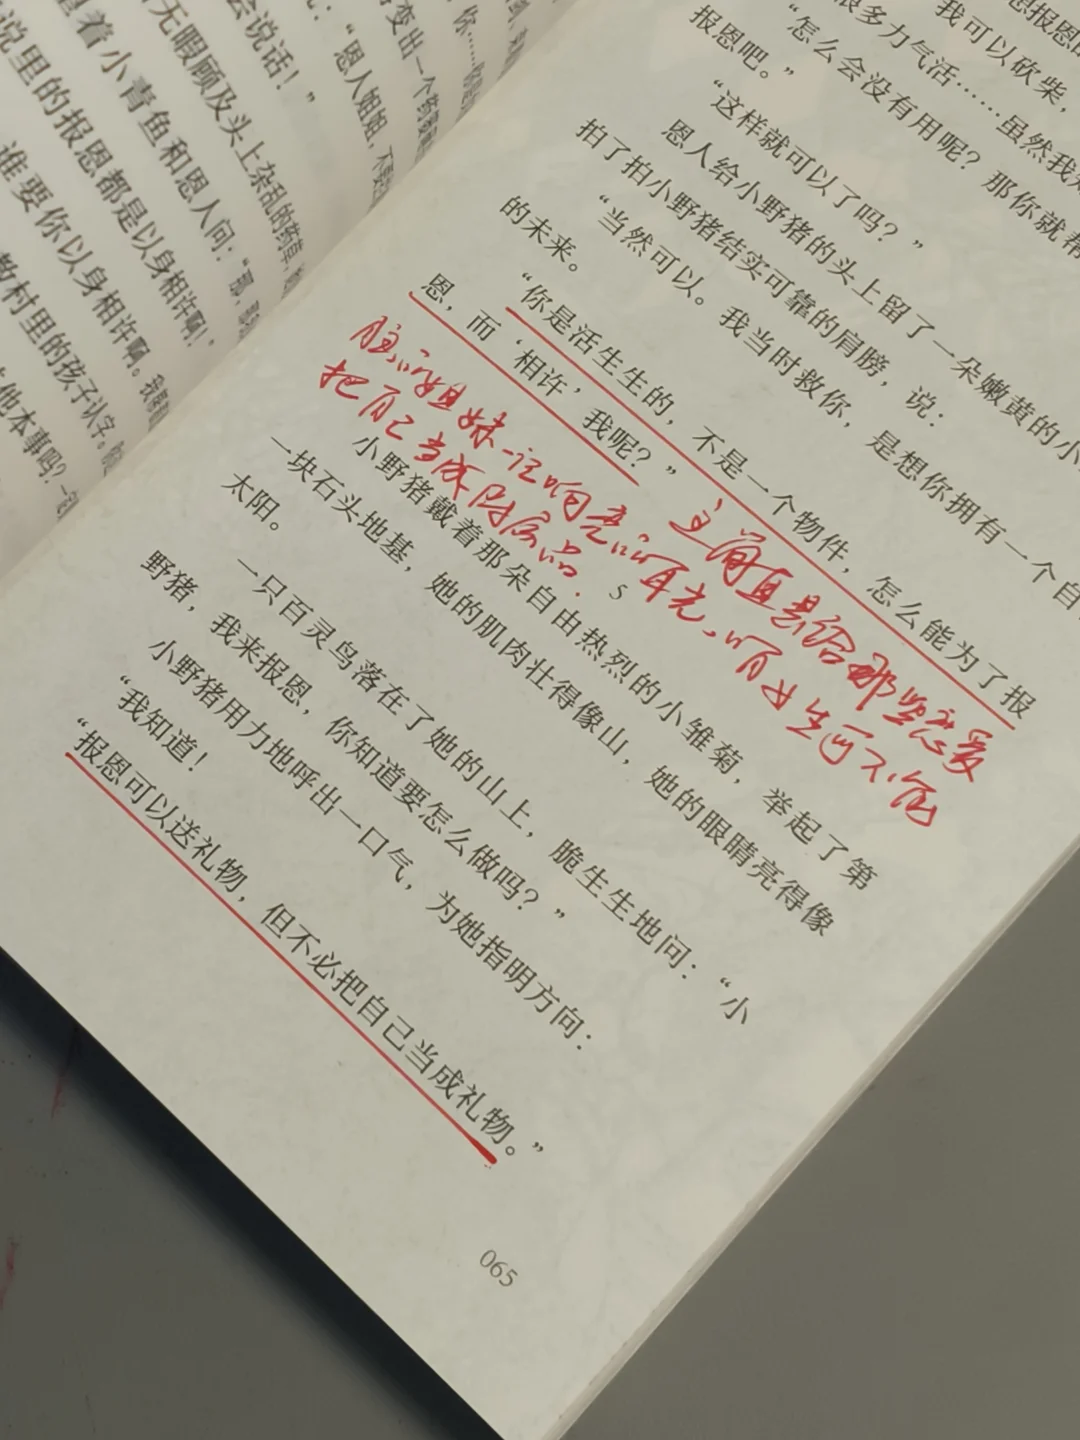 会说话！”
无暇顾及头上杂乱的
着小青鱼和恩人问：“
说里的报恩都是以身相许啊！”
谁要你以身相许啊。我
教村里的孩子认字。
他本事吗？
：“恩人姐姐，不要
变出一个
你……
想报恩
“我可以砍柴，
很多力气活……虽然我
“怎么会没有用呢？那你就帮
报恩吧。”
“这样就可以了吗？”
恩人给小野猪的头上留了一朵嫩黄的小
拍了拍小野猪结实可靠的肩膀，说：
“当然可以。我当时救你，是想你拥有一个自
的未来。
“你是活生生的，不是一个物件，怎么能为了报
恩，而‘相许’我呢？”
这简直是给那些恋爱
脑的姐妹一记响亮的耳光，咱女生可不能
把自己当成附属品.
5
小野猪戴着那朵自由热烈的小雏菊，举起了第
一块石头地基，她的肌肉壮得像山，她的眼睛亮得像
太阳。
一只百灵鸟落在了她的山上，脆生生地问：“小
野猪，我来报恩，你知道要怎么做吗？”
小野猪用力地呼出一口气，为她指明方向：
“我知道！
“报恩可以送礼物，但不必把自己当成礼物。”
065